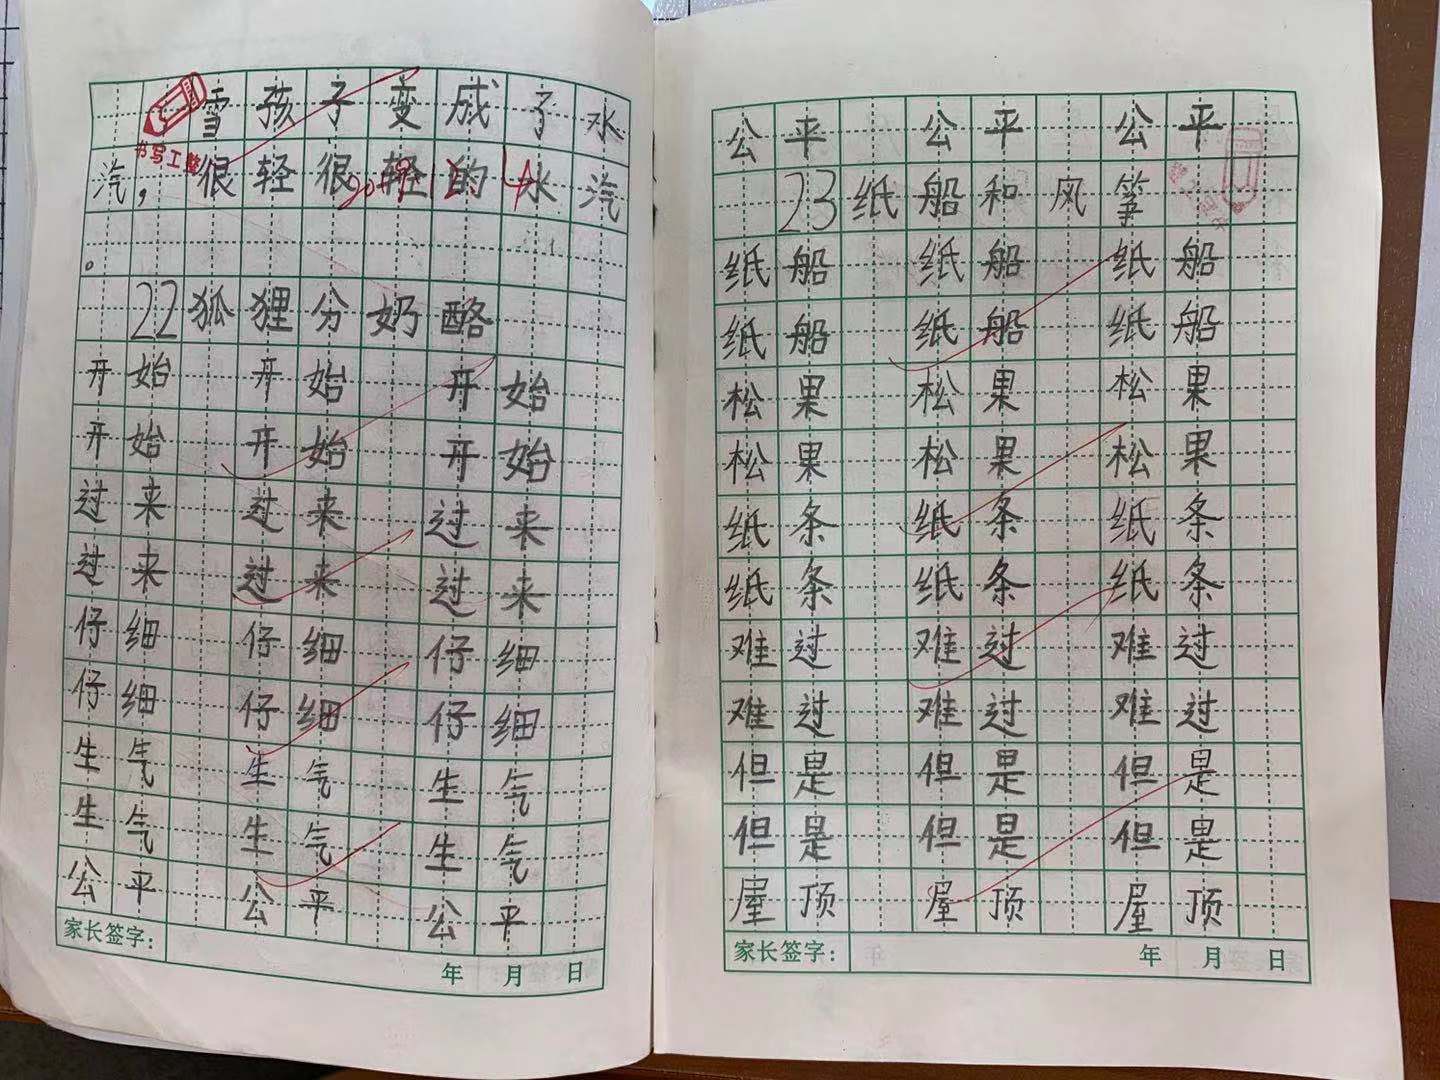 雪孩子变成了水
书写工整
汽，很轻很轻的水汽
。
22狐狸分奶酪
开始 开始 开始
开始 开始 开始
过来 过来 过来
过来 过来 过来
仔细 仔细 仔细
仔细 仔细 仔细
生气 生气 生气
生气 生气 生气
公平 公平 公平
家长签字： 年 月 日
公平 公平 公平
23纸船和风筝
纸船 纸船 纸船
纸船 纸船 纸船
松果 松果 松果
松果 松果 松果
纸条 纸条 纸条
纸条 纸条 纸条
难过 难过 难过
难过 难过 难过
但是 但是 但是
但是 但是 但是
屋顶 屋顶 屋顶
家长签字： 年 月 日